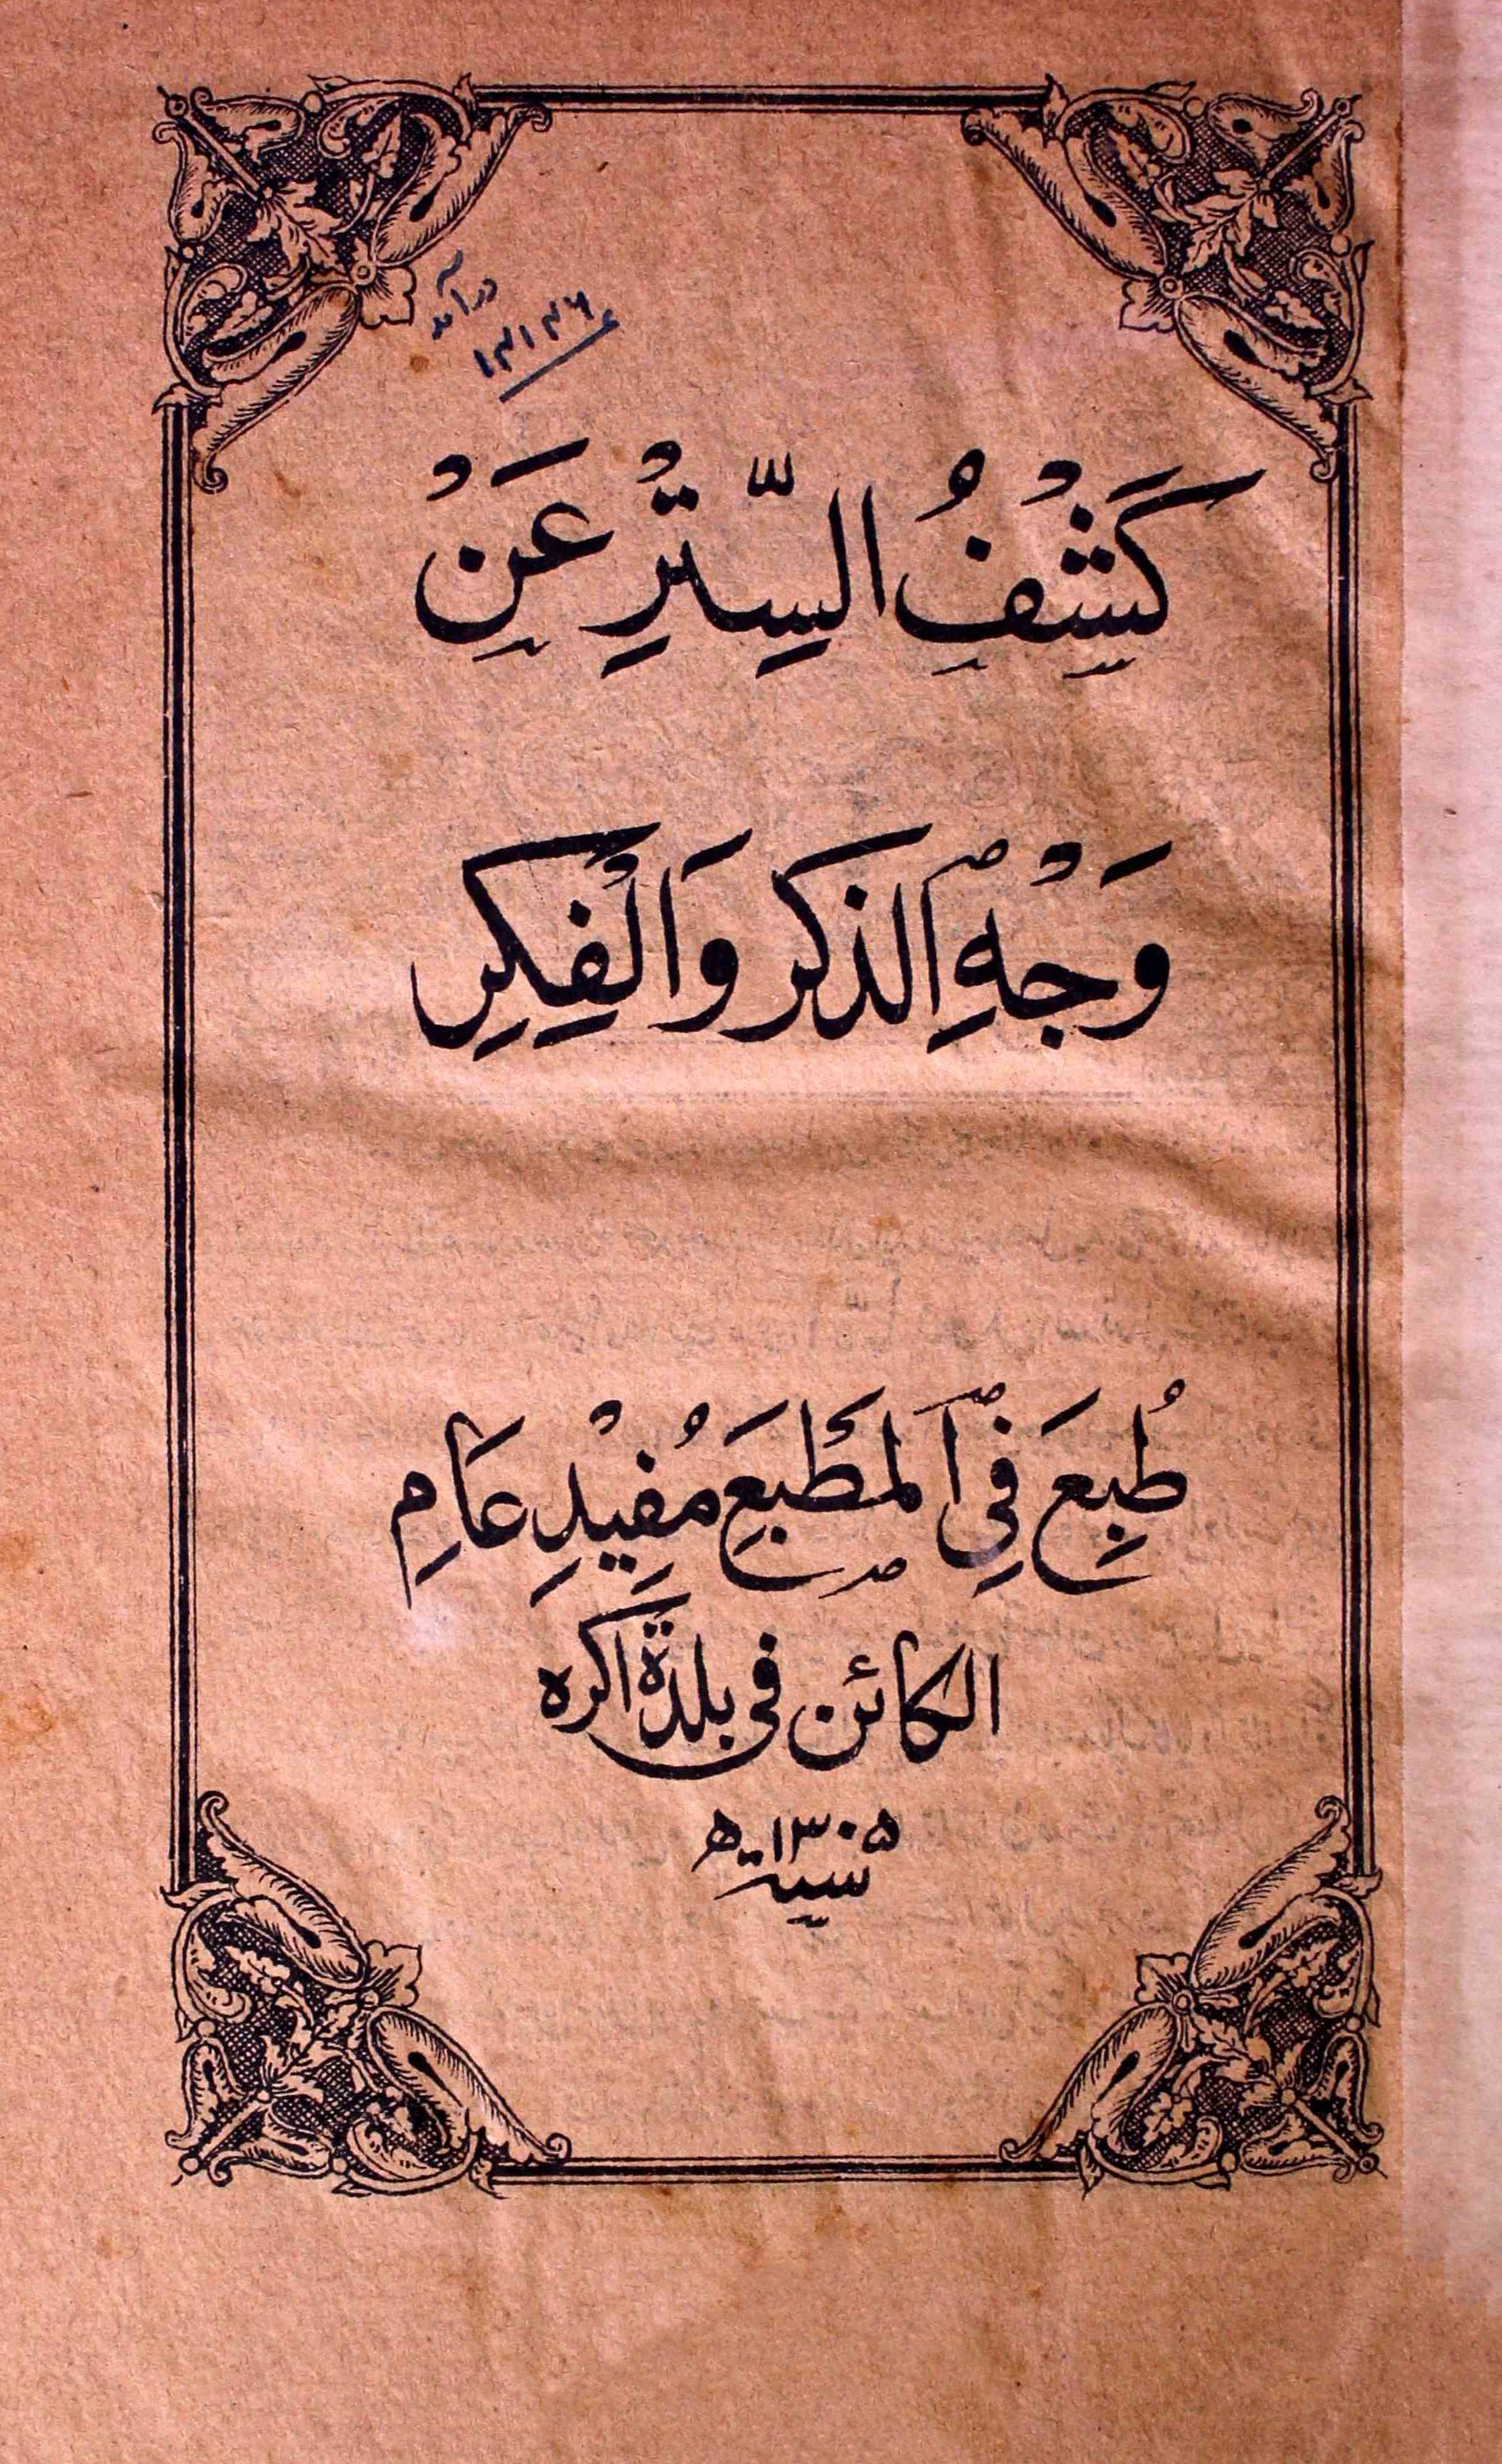 درآمد
١٣١٣٦
كَشْفُ السِّتْرِ عَنْ
وَجْهِ الذكر وَالْفِكِرِ
طُبِعَ فِي الْمَطْبَعِ مُفِيْدِ عَامِ
الكائن في بلدة اكره
سنة ١٣٠٥ ھ